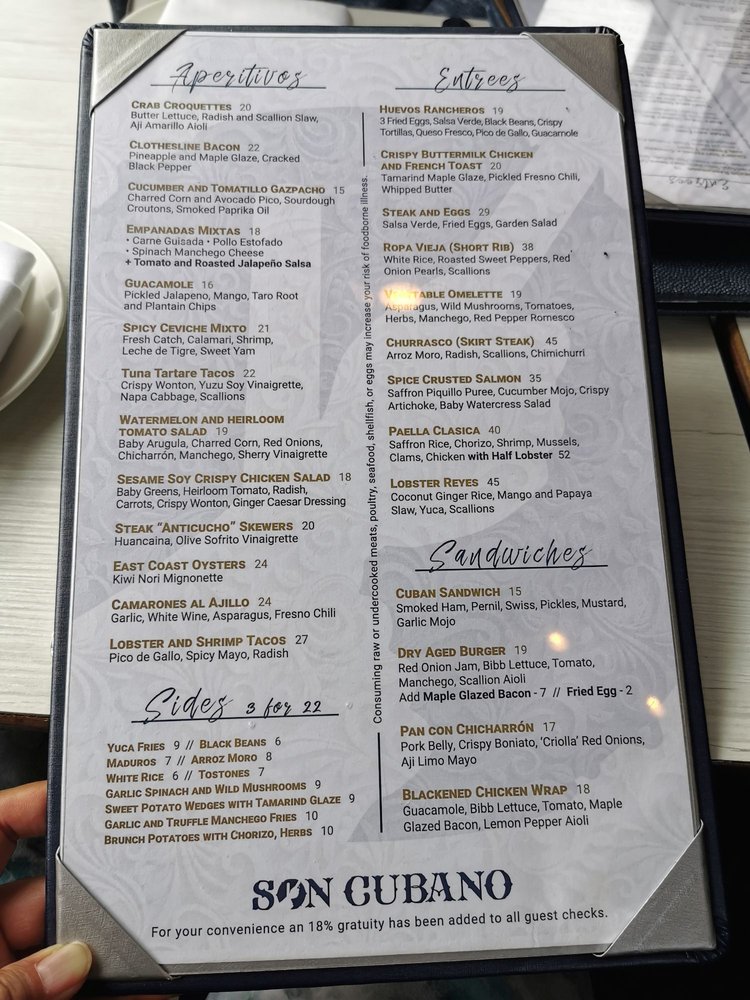 Aperitivos
CRAB CROQUETTES 20
Butter Lettuce, Radish and Scallion Slaw,
Aji Amarillo Aioli
CLOTHESLINE BACON 22
Pineapple and Maple Glaze, Cracked
Black Pepper
CUCUMBER AND TOMATILLO GAZPACHO 15
Charred Corn and Avocado Pico, Sourdough
Croutons, Smoked Paprika Oil
EMPANADAS MIXTAS 18
• Carne Guisada • Pollo Estofado
• Spinach Manchego Cheese
+ Tomato and Roasted Jalapeño Salsa
GUACAMOLE 16
Pickled Jalapeno, Mango, Taro Root
and Plantain Chips
SPICY CEVICHE MIXTO 21
Fresh Catch, Calamari, Shrimp,
Leche de Tigre, Sweet Yam
TUNA TARTARE TACOS 22
Crispy Wonton, Yuzu Soy Vinaigrette,
Napa Cabbage, Scallions
WATERMELON AND HEIRLOOM
TOMATO SALAD 19
Baby Arugula, Charred Corn, Red Onions,
Chicharrón, Manchego, Sherry Vinaigrette
SESAME SOY CRISPY CHICKEN SALAD 18
Baby Greens, Heirloom Tomato, Radish,
Carrots, Crispy Wonton, Ginger Caesar Dressing
STEAK "ANTICUCHO" SKEWERS 20
Huancaina, Olive Sofrito Vinaigrette
EAST COAST OYSTERS 24
Kiwi Nori Mignonette
CAMARONES AL AJILLO 24
Garlic, White Wine, Asparagus, Fresno Chili
LOBSTER AND SHRIMP TACOS 27
Pico de Gallo, Spicy Mayo, Radish
Sides 3 for 22
YUCA FRIES 9 // BLACK BEANS 6
MADUROS 7 // ARROZ MORO 8
WHITE RICE 6 // TOSTONES 7
GARLIC SPINACH AND WILD MUSHROOMS 9
SWEET POTATO WEDGES WITH TAMARIND GLAZE 9
GARLIC AND TRUFFLE MANCHEGO FRIES 10
BRUNCH POTATOES WITH CHORIZO, HERBS 10
Consuming raw or undercooked meats, poultry, seafood, shellfish, or eggs may increase your risk of foodborne illness.
Entrees
HUEVOS RANCHEROS 19
3 Fried Eggs, Salsa Verde, Black Beans, Crispy
Tortillas, Queso Fresco, Pico de Gallo, Guacamole
CRISPY BUTTERMILK CHICKEN
AND FRENCH TOAST 20
Tamarind Maple Glaze, Pickled Fresno Chili,
Whipped Butter
STEAK AND EGGS 29
Salsa Verde, Fried Eggs, Garden Salad
ROPA VIEJA (SHORT RIB) 38
White Rice, Roasted Sweet Peppers, Red
Onion Pearls, Scallions
VEGETABLE OMELETTE 19
Asparagus, Wild Mushrooms, Tomatoes,
Herbs, Manchego, Red Pepper Romesco
CHURRASCO (SKIRT STEAK) 45
Arroz Moro, Radish, Scallions, Chimichurri
SPICE CRUSTED SALMON 35
Saffron Piquillo Puree, Cucumber Mojo, Crispy
Artichoke, Baby Watercress Salad
PAELLA CLASICA 40
Saffron Rice, Chorizo, Shrimp, Mussels,
Clams, Chicken with Half Lobster 52
LOBSTER REYES 45
Coconut Ginger Rice, Mango and Papaya
Slaw, Yuca, Scallions
Sandwiches
CUBAN SANDWICH 15
Smoked Ham, Pernil, Swiss, Pickles, Mustard,
Garlic Mojo
DRY AGED BURGER 19
Red Onion Jam, Bibb Lettuce, Tomato,
Manchego, Scallion Aioli
Add Maple Glazed Bacon - 7 // Fried Egg - 2
PAN CON CHICHARRÓN 17
Pork Belly, Crispy Boniato, 'Criolla' Red Onions,
Aji Limo Mayo
BLACKENED CHICKEN WRAP 18
Guacamole, Bibb Lettuce, Tomato, Maple
Glazed Bacon, Lemon Pepper Aioli
SON CUBANO
For your convenience an 18% gratuity has been added to all guest checks.
Entrees